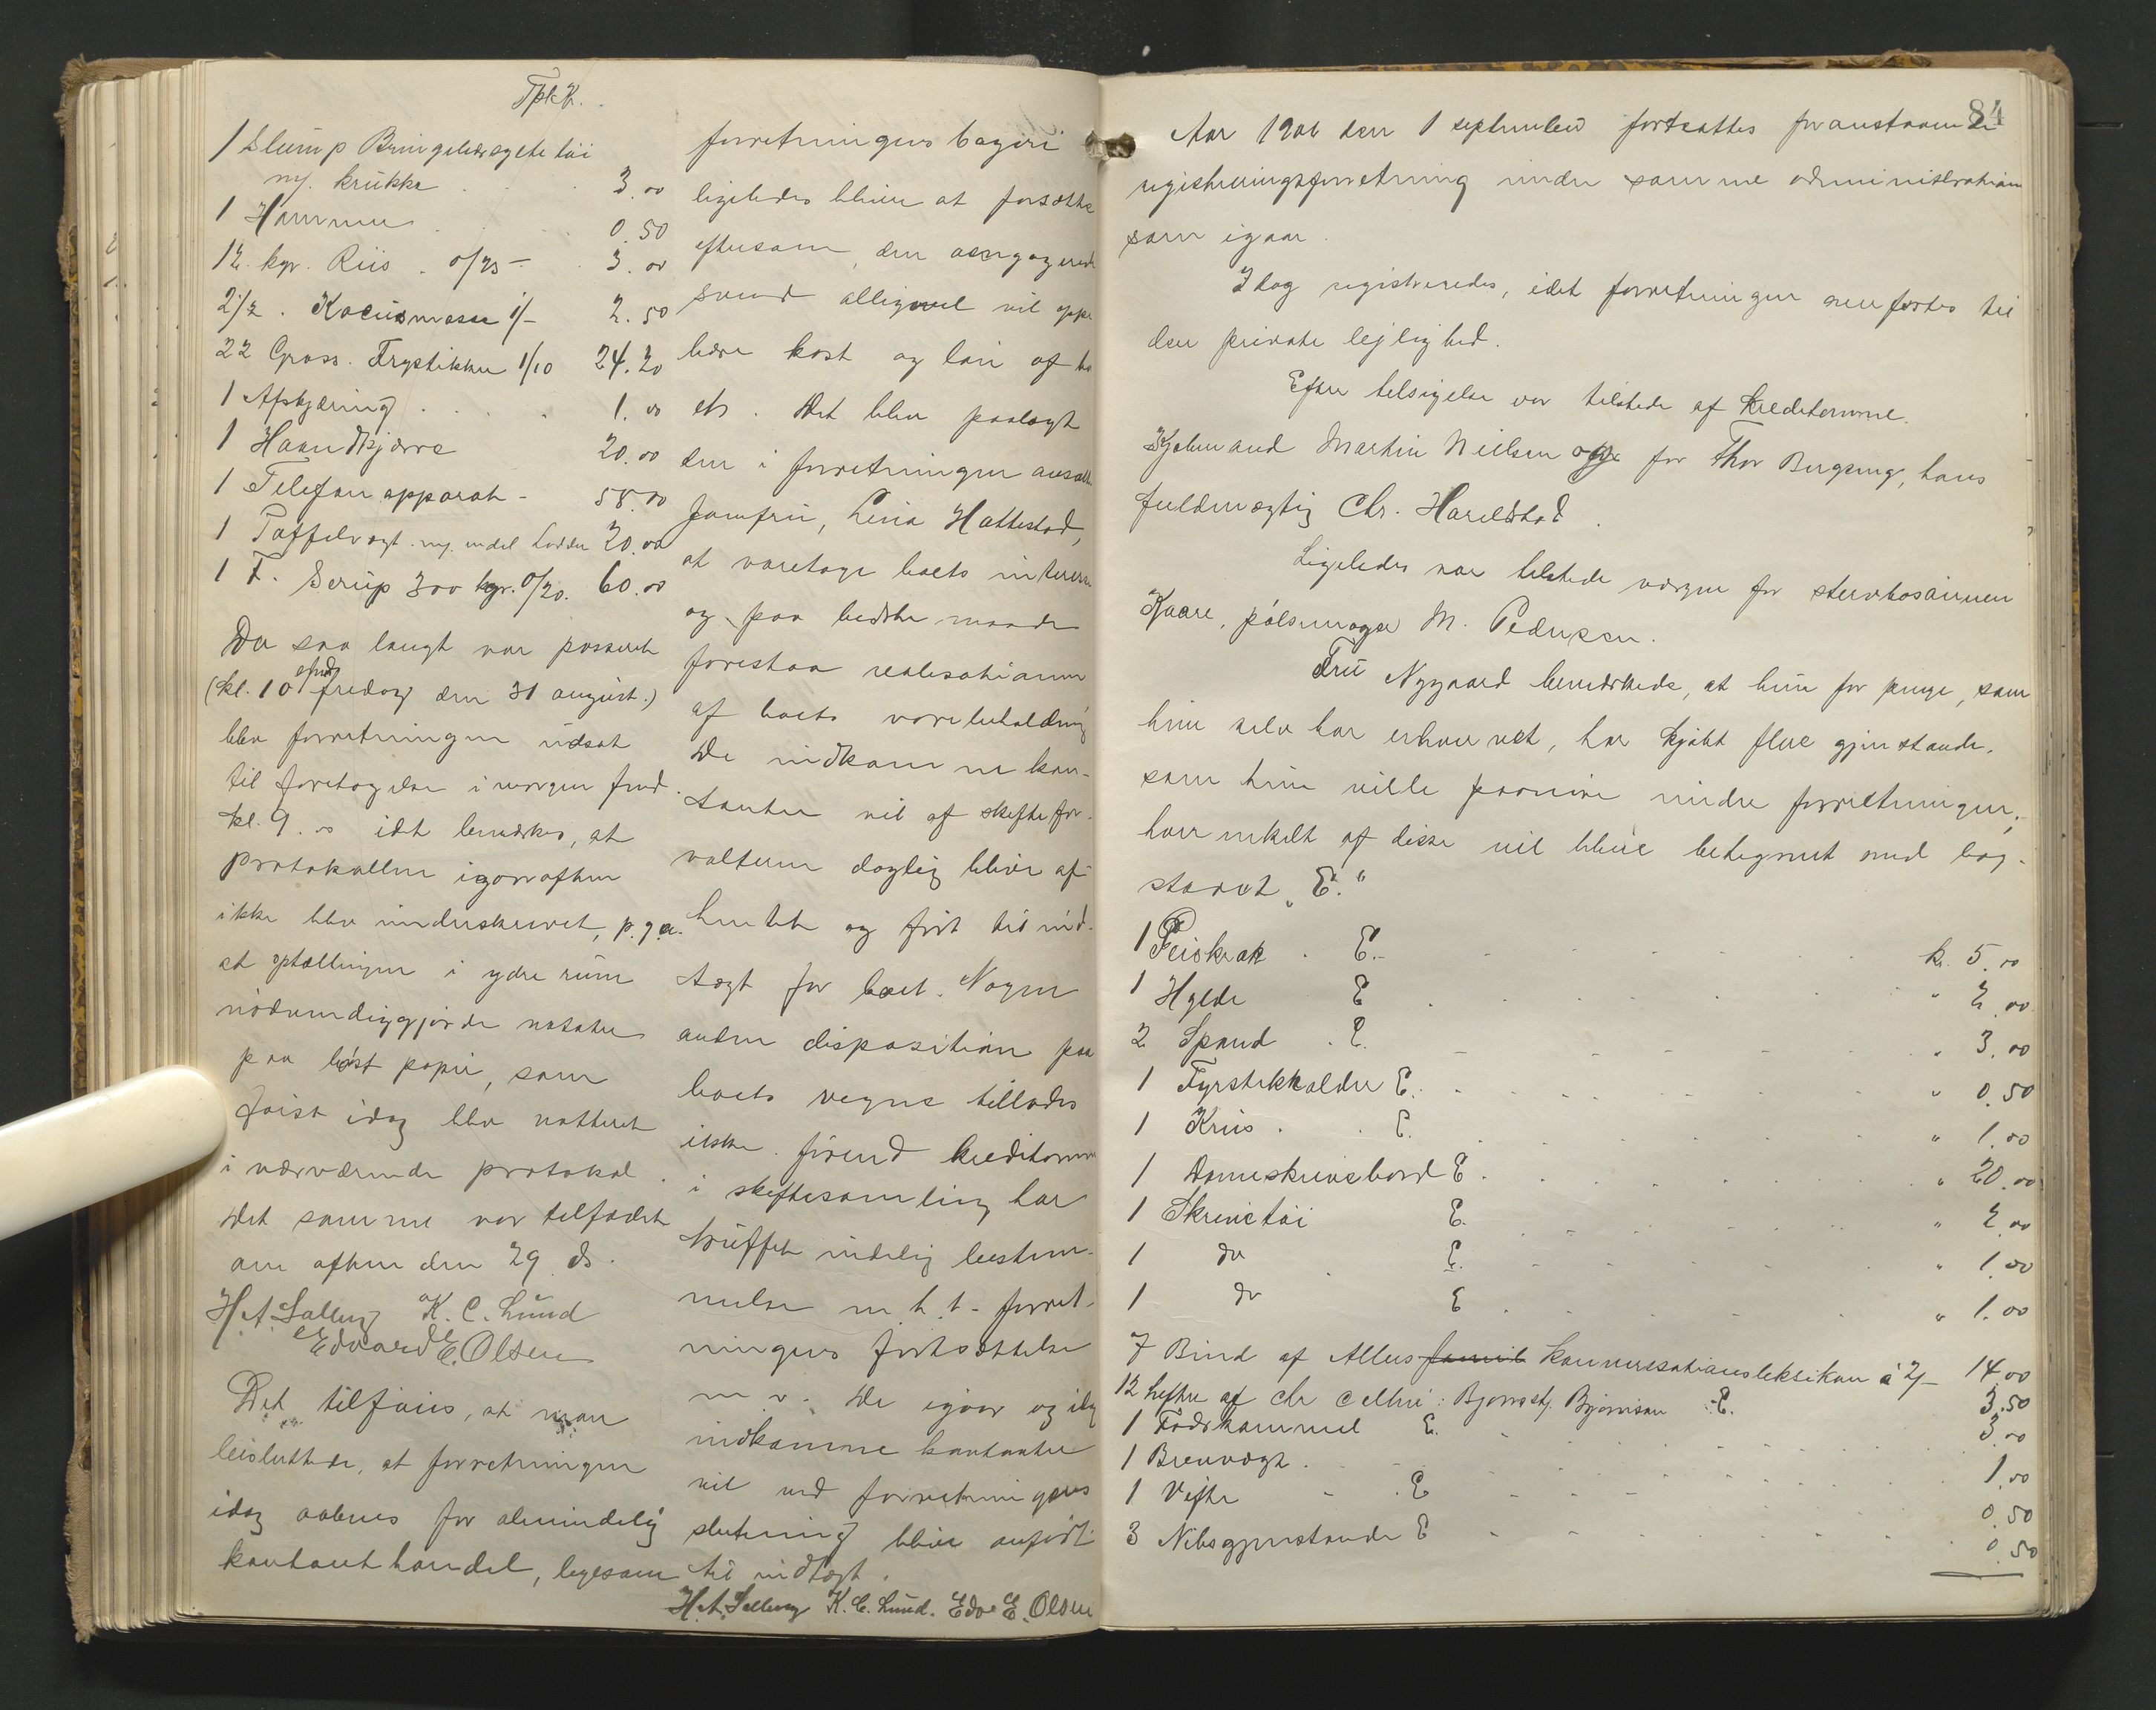 Tpk K.
1 Slump Bringebærsylte töi
m/. krukke 3.00
1 Hammer 0.50
12 kgr. Riis 0/25 - 3.00
2 1/2 . Kocusmasse 1/- 2.50
22 Gross. Frystikker 1/10 24.20
1 Afskjæring 1.00
1 Haandkjærre 20.00
1 Telefonapparat - 58.00
1 Taffelvægt m/. endel Lodder 20.00
1 F. Sirup 300 kgr. 0/20. 60.00
Da saa langt var passeret
(kl. 10 efmd fredag den 31 august.)
blev forretningen udsat
til foretagelse i morgen fmd.
kl. 9.00 idet bemærkes, at
protokollen igaaraften
ikke blev underskrevet, p.g.a.
at optællingen i ydre rum
nödvendiggjorde notater
paa löst papir, som
förist idag blev notteret
i nærværende protokol.
Det samme var tilfældet
om aften den 29 ds.
H.A. Salberg K. C. Lund
Edvard E. Olsen
Det tilföies, at man
beisluttede, at forretningen
idag aabnes for almindelig
kontant handel, ligesom
forretningens bageri
ligeledes bliver at forsætte
eftersom den engagerede
svend alligevel vil oppe
bære kost og lön af bo
ets. Det blev paalagt
den i forretningen ansatte
Jomfru, Lina Hattestad,
at varetage boets interesse
og paa bedste maade
forestaa realisationen
af boets varebeholdning
De indkomne kon-
tanter vil af skiftefor-
valteren daglig blive af-
hentet og fört til ind-
tægt for boet. Nogen
anden disposition paa
boets vegne tillades
ikke förend kreditorerne
i skiftesamling har
truffet endelig bestem-
melse m.h.t. forret-
ningens fortsættelse
m v. De igaar og idag
indkomne kontanter
vil ved forretningens
slutning blive anfört
til indtægt.
H.A. Salberg K. C. Lund. Edv. E. Olsen
84
Aar 1906 den 1 september fortsattes foranstaaende
registreringsforretning under samme administration
som igaar.
Idag registreredes, idet forretningen nu förtes til
den private lejlighed.
Efter tilsigelse var tilstede af kreditorerne.
Kjøbmand Martin Nielsen og for Thor Bugsing, hans
fuldmægtig Chr. Harildstad.
Ligeledes var tilstede værgen for stervbosönnen
Kaare, pölsemager M. Pedersen.
Fru Nygaard bemærkede, at hun for penge, som
hun selv har erhvervet, har kjöbt flere gjenstande,
som hun ville paavise under forretningen;
hver enkelt af disse vil blive betegnet med bog-
stavet „E."
1 Peiskrak E. kr. 5.00
1 Hylde E " 2.00
2 Spand E. " 3.00
1 Fyrstikkolder E. " 0.50
1 Krus E. " 1.00
1 Dameskrivebord E. " 20.00
1 Skrivetöi E. " 2.00
1 do E. " 1.00
1 do E " 1.00
7 Bind af Allers famil Konversationsleksikon á 2/- 14.00
12 hefter af Chr Collin: Bjørnstj. Bjørnson E. 3.50
1 Fodskammel E. 3.00
1 Brevvægt 1.00
1 Vifte E 0.50
3 Nibsgjenstande E 0.50